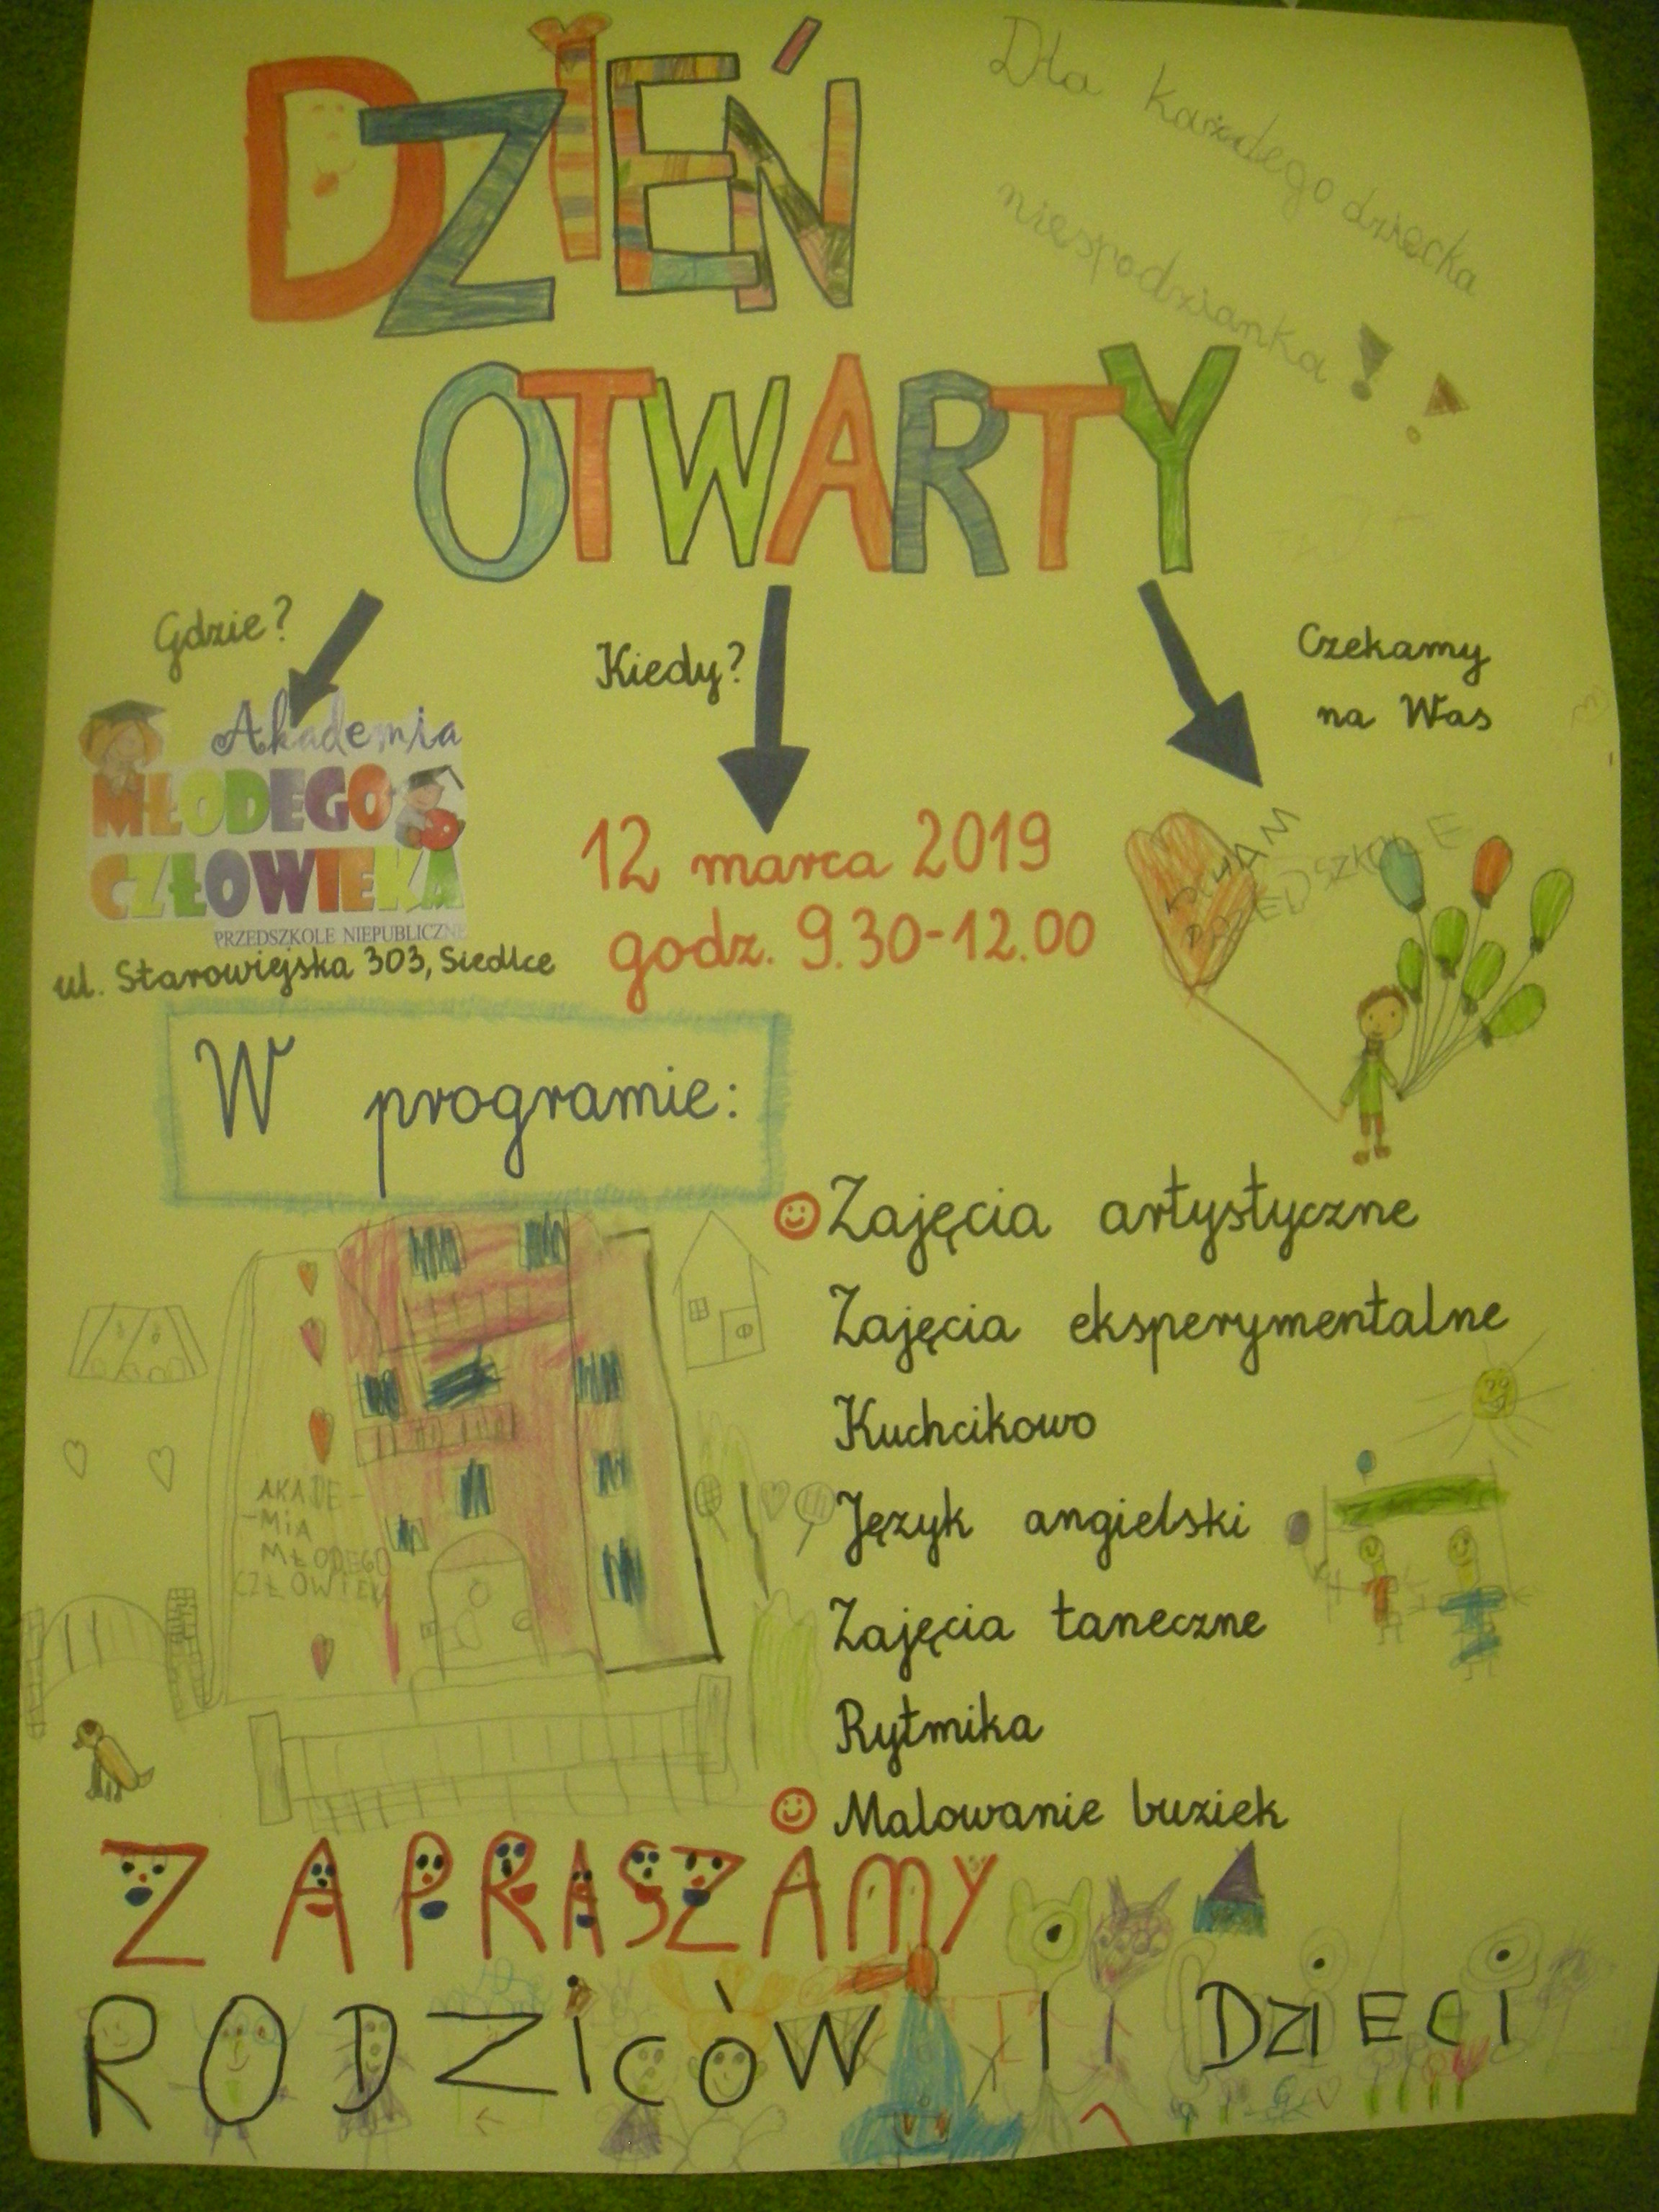 DZIEŃ
OTWARTY
Dla każdego dziecka
niespodzianka!!
Gdzie?
Akademia
MŁODEGO
CZŁOWIEKA
PRZEDSZKOLE NIEPUBLICZNE
ul. Starowiejska 303, Siedlce
Kiedy?
12 marca 2019
godz. 9.30-12.00
Czekamy
na Was
W programie:
Zajęcia artystyczne
Zajęcia eksperymentalne
Kuchcikowo
Język angielski
Zajęcia taneczne
Rytmika
Malowanie buziek
AKADE-
-MIA
MŁODEGO
CZŁOWIEKA
ZAPRASZAMY
RODZICÓW I DZIECI